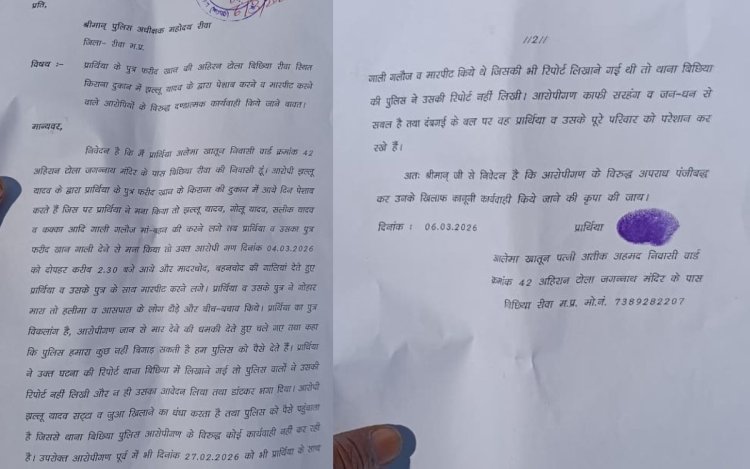 प्रति,
श्रीमान् पुलिस अधीक्षक महोदय रीवा
जिला- रीवा म.प्र.
विषय :- प्रार्थिया के पुत्र फरीद खान की अहिरन टोला बिछिया रीवा स्थित
किराना दुकान में झल्लू यादव के द्वारा पेशाब करने व मारपीट करने
वाले आरोपियों के विरुद्ध दण्डात्मक कार्यवाही किये जाने बावत।
मान्यवर,
निवेदन है कि मैं प्रार्थिया अलेमा खातून निवासी वार्ड क्रमांक 42
अहिरान टोला जगन्नाथ मंदिर के पास बिछिया रीवा की निवासी हूँ। आरोपी झल्लू
यादव के द्वारा प्रार्थिया के पुत्र फरीद खान के किराना की दुकान में आये दिन पेशाब
करते हैं जिस पर प्रार्थिया ने मना किया तो झल्लू यादव, गोलू यादव, सलीक यादव
व कक्का आदि गाली गलौज मां-बहन की करने लगे तब प्रार्थिया व उसका पुत्र
फरीद खान गाली देने से मना किया तो उक्त आरोपी गण दिनांक 04.03.2026
को दोपहर करीब 2.30 बजे आये और मादरचोद, बहनचोद की गालियां देते हुए
प्रार्थिया व उसके पुत्र के साथ मारपीट करने लगे। प्रार्थिया व उसके पुत्र ने गोहार
मारा तो हलीमा व आसपास के लोग दौड़े और बीच-बचाव किये। प्रार्थिया का पुत्र
विकलांग है, आरोपीगण जान से मार देने की धमकी देते हुए चले गए तथा कहा
कि पुलिस हमारा कुछ नहीं बिगाड़ सकती है हम पुलिस को पैसे देते हैं। प्रार्थिया
ने उक्त घटना की रिपोर्ट थाना बिछिया में लिखाने गई तो पुलिस वालों ने उसकी
रिपोर्ट नहीं लिखी और न ही उसका आवेदन लिया तथा डांटकर भगा दिया। आरोपी
झल्लू यादव सट्टा व जुआ खिलाने का धंधा करता है तथा पुलिस को पैसे पहुंचाता
है जिससे थाना बिछिया पुलिस आरोपीगण के विरुद्ध कोई कार्यवाही नहीं कर रही
है। उपरोक्त आरोपीगण पूर्व में भी दिनांक 27.02.2026 को भी प्रार्थिया के साथ
//2//
गाली गलौज व मारपीट किये थे जिसकी भी रिपोर्ट लिखाने गई थी तो थाना बिछिया
की पुलिस ने उसकी रिपोर्ट नहीं लिखी। आरोपीगण काफी सरहंग व जन-धन से
सबल है तथा दंबगई के बल पर वह प्रार्थिया व उसके पूरे परिवार को परेशान कर
रखे हैं।
अतः श्रीमान् जी से निवेदन है कि आरोपीगण के विरुद्ध अपराध पंजीबद्ध
कर उनके खिलाफ कानूनी कार्यवाही किये जाने की कृपा की जाय।
दिनांक : 06.03.2026 प्रार्थिया
अलेमा खातून पत्नी अतीक अहमद निवासी वार्ड
क्रमांक 42 अहिरान टोला जगन्नाथ मंदिर के पास
बिछिया रीवा म.प्र. मो.नं. 7389282207